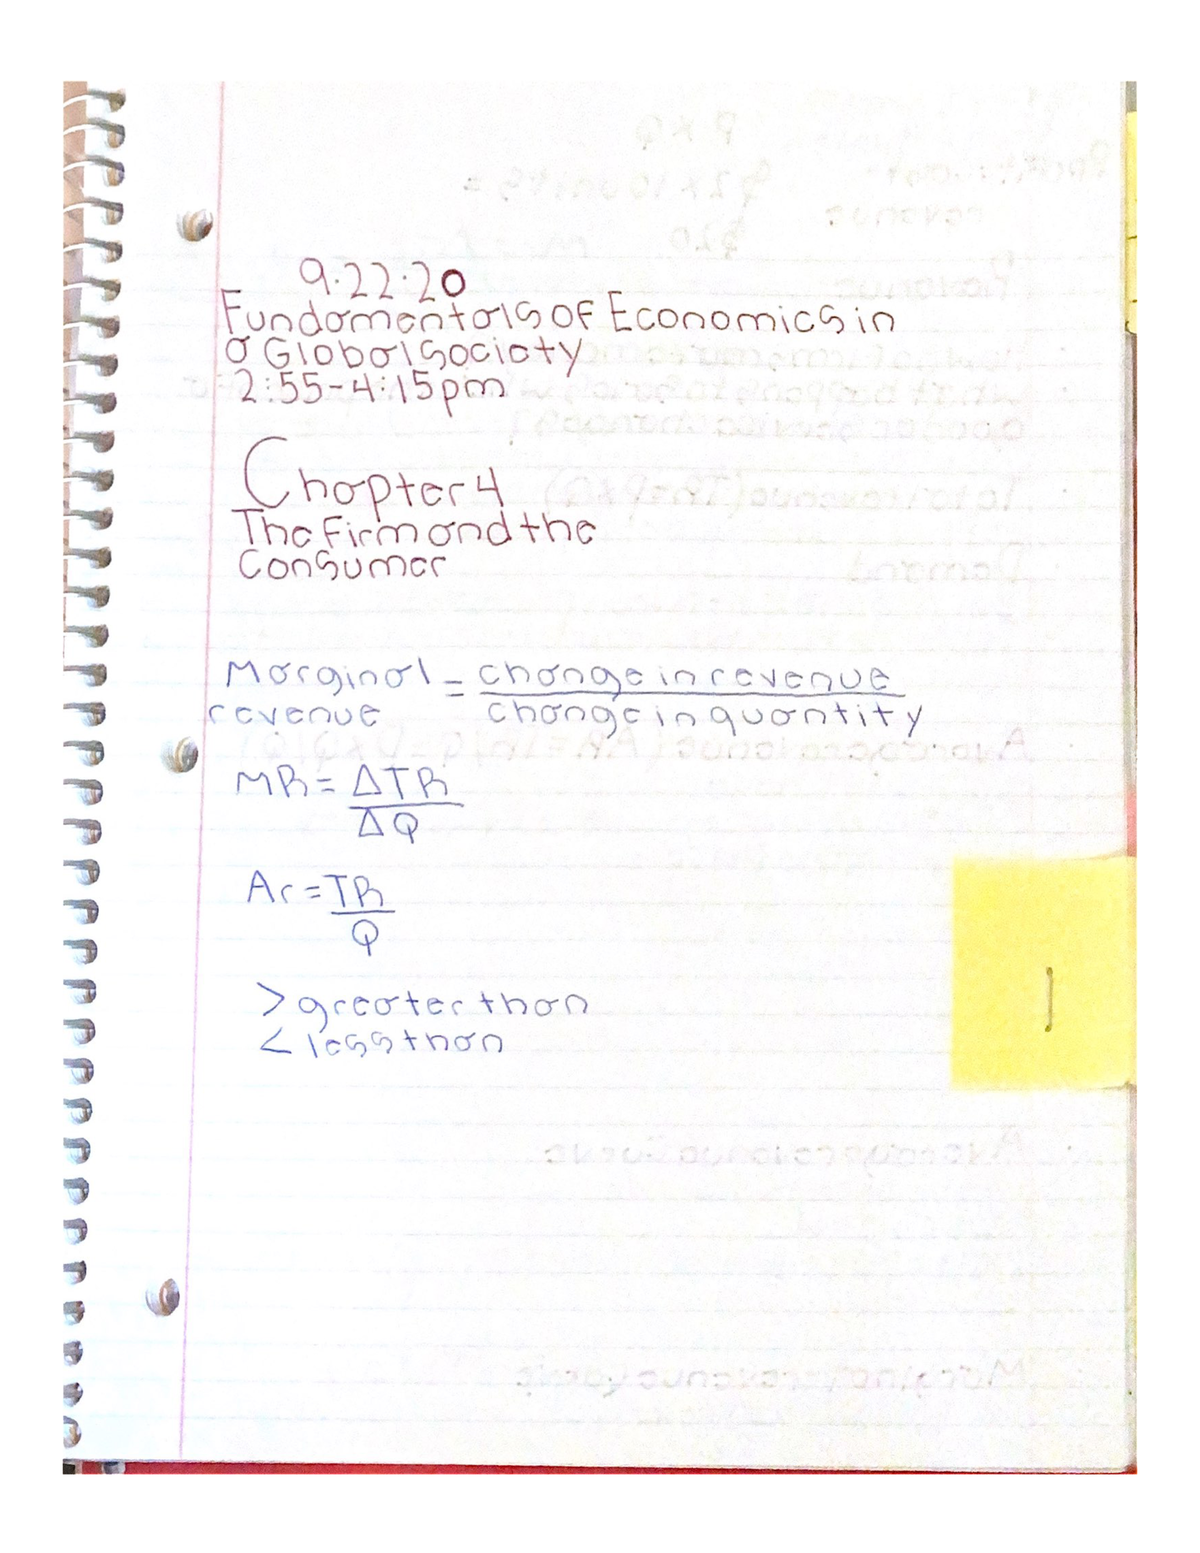 9.22.20
Fundamentals of Economics in
a Global Society
2:55-4:15pm
Chapter 4
The Firm and the
Consumer
Marginal revenue = change in revenue
change in quantity
MR = ΔTR
ΔQ
Ar = TR
Q
> greater than
< less than